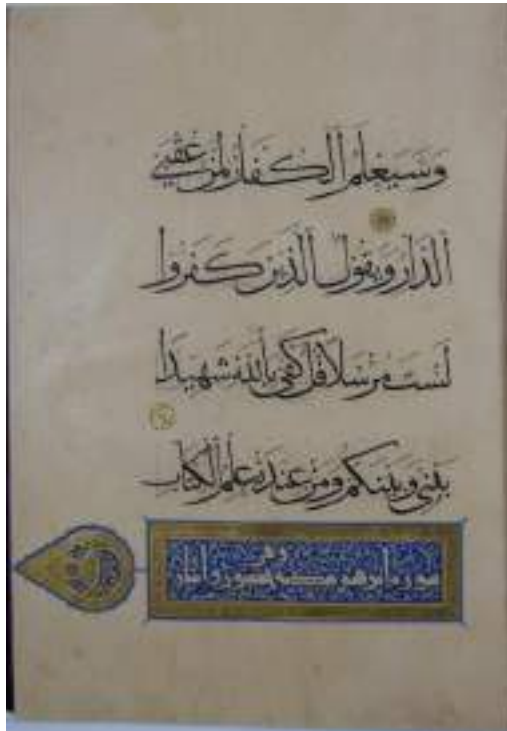 وَسَيَعْلَمُ الْكُفَّارُ لِمَنْ عُقْبَى
الدَّارِ وَيَقُولُ الَّذِينَ كَفَرُوا
لَسْتَ مُرْسَلًا قُلْ كَفَى بِاللَّهِ شَهِيدًا
بَيْنِي وَبَيْنَكُمْ وَمَنْ عِنْدَهُ عِلْمُ الْكِتَابِ
سورة ابرهيم مكية